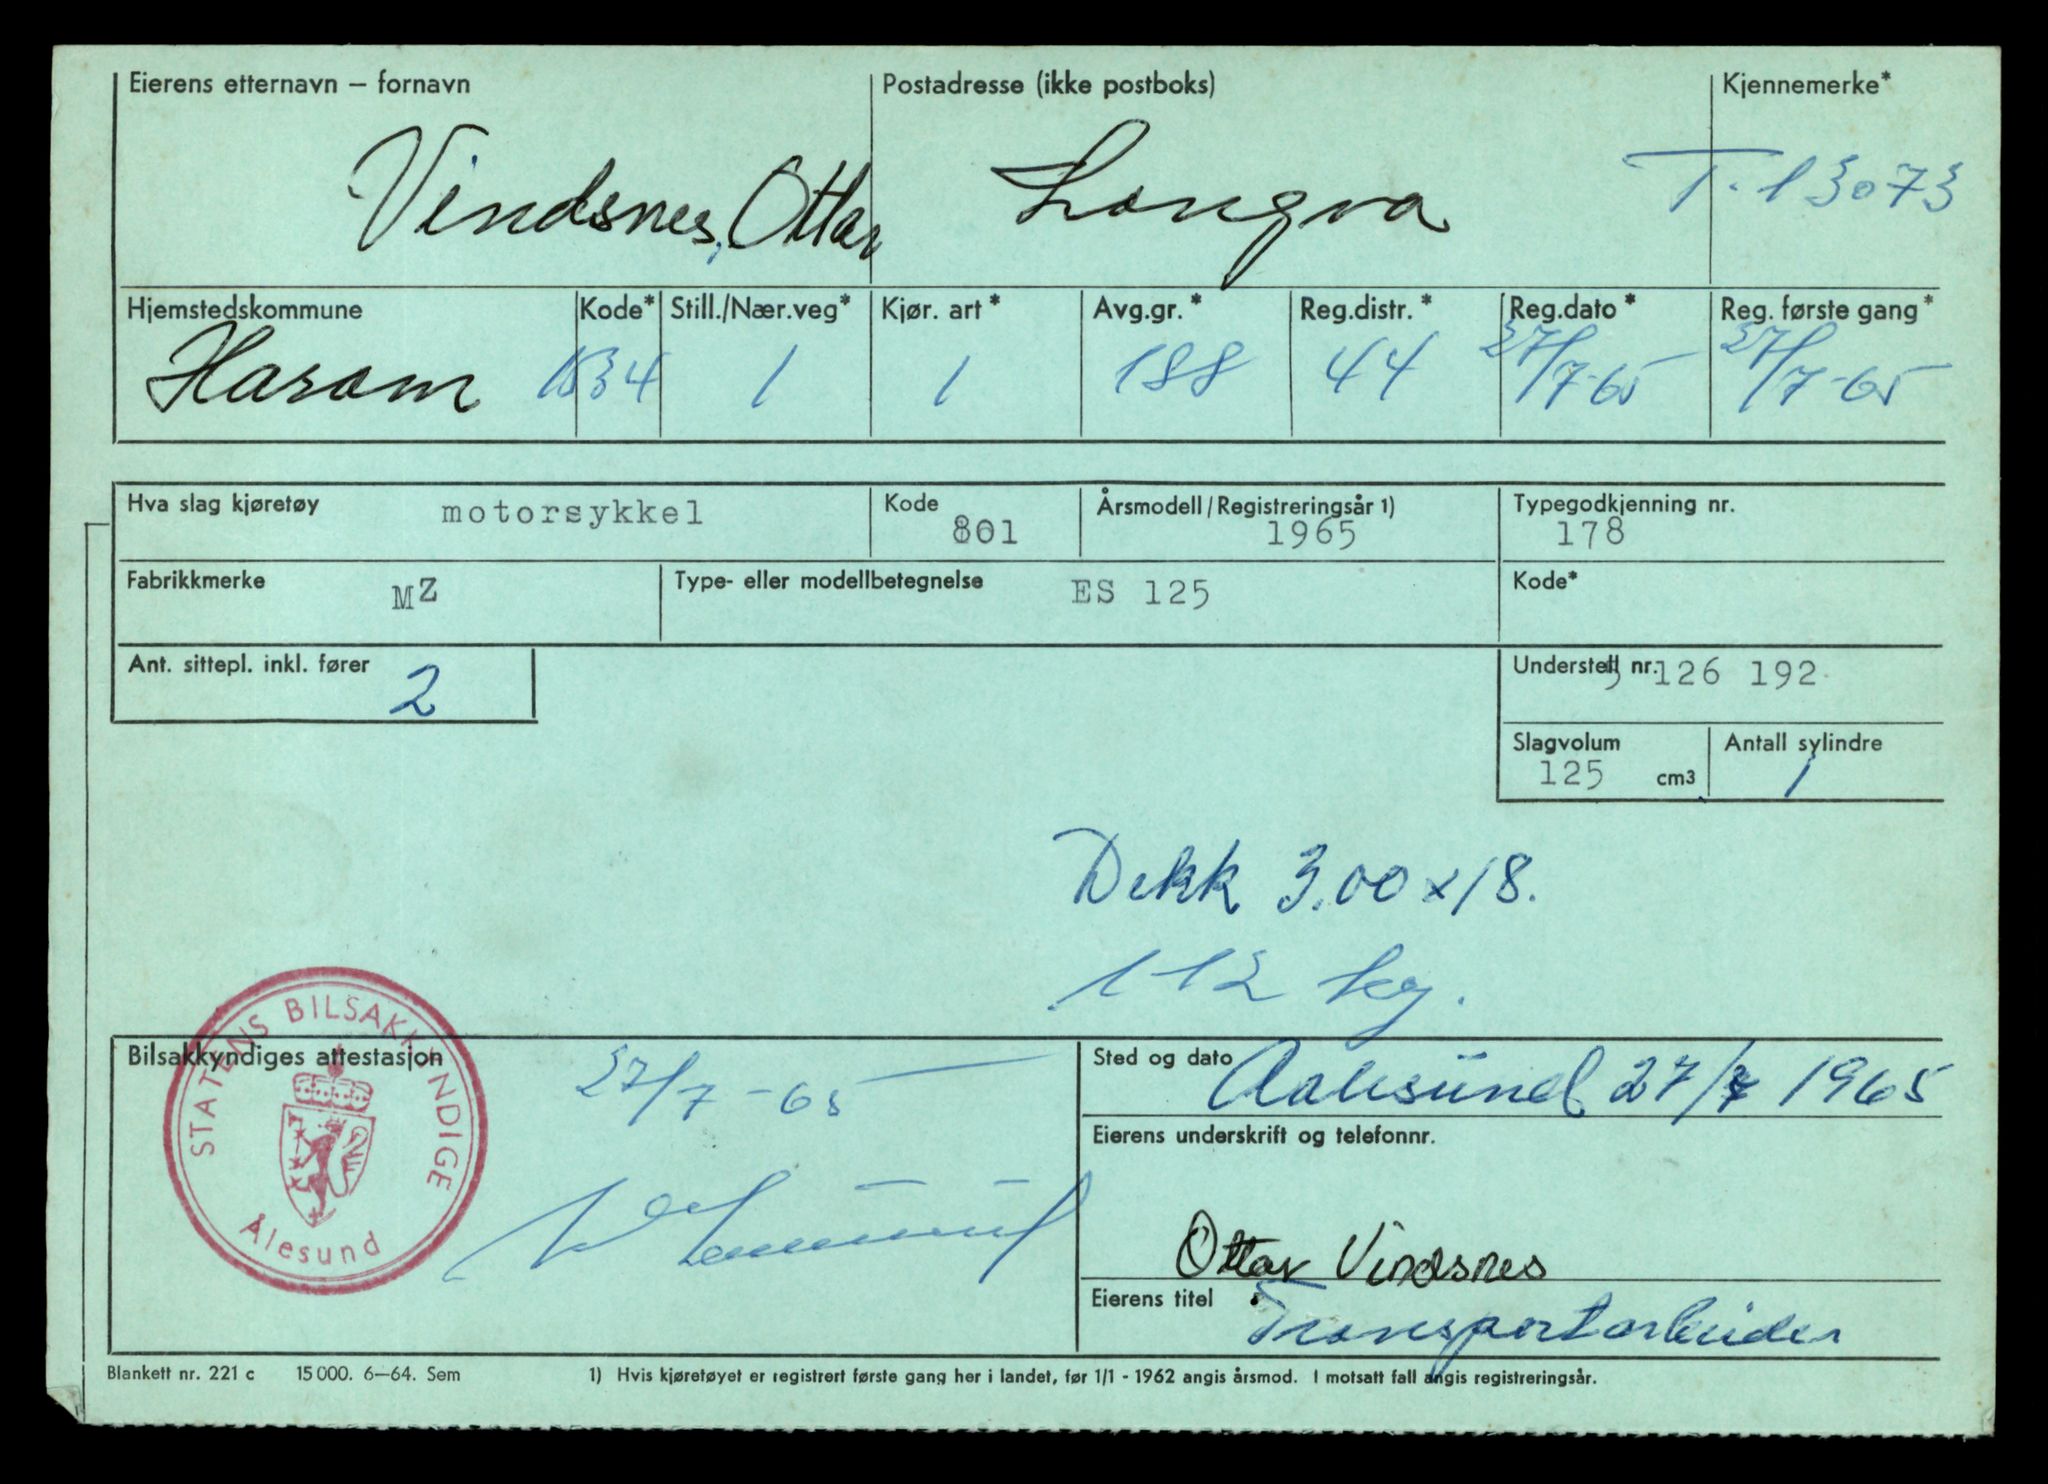 Eierens etternavn – fornavn Postadresse (ikke postboks) Kjennemerke*
Vindsnes, Ottar Longva T-13073
Hjemstedskommune Kode* Still./Nær.veg* Kjør. art* Avg.gr.* Reg.distr.* Reg.dato* Reg. første gang*
Haram 1534 1 1 188 44 27/7-65 27/7-65
Hva slag kjøretøy motorsykkel Kode 801 Årsmodell/Registreringsår 1) 1965 Typegodkjenning nr. 178
Fabrikkmerke MZ Type- eller modellbetegnelse ES 125 Kode*
Ant. sittepl. inkl. fører 2 Understell nr. 126 192
Slagvolum 125 cm3 Antall sylindre 1
Dekk 3.00 x 18.
112 kg.
STATENS BILSAKKYNDIGE
Ålesund
Bilsakkyndiges attestasjon 27/7-65
Sted og dato Aalesund 27/7 1965
Eierens underskrift og telefonnr.
Ottar Vindsnes
Eierens titel Transportarbeider
Blankett nr. 221 c 15000. 6–64. Sem 1) Hvis kjøretøyet er registrert første gang her i landet, før 1/1 - 1962 angis årsmod. I motsatt fall angis registreringsår.